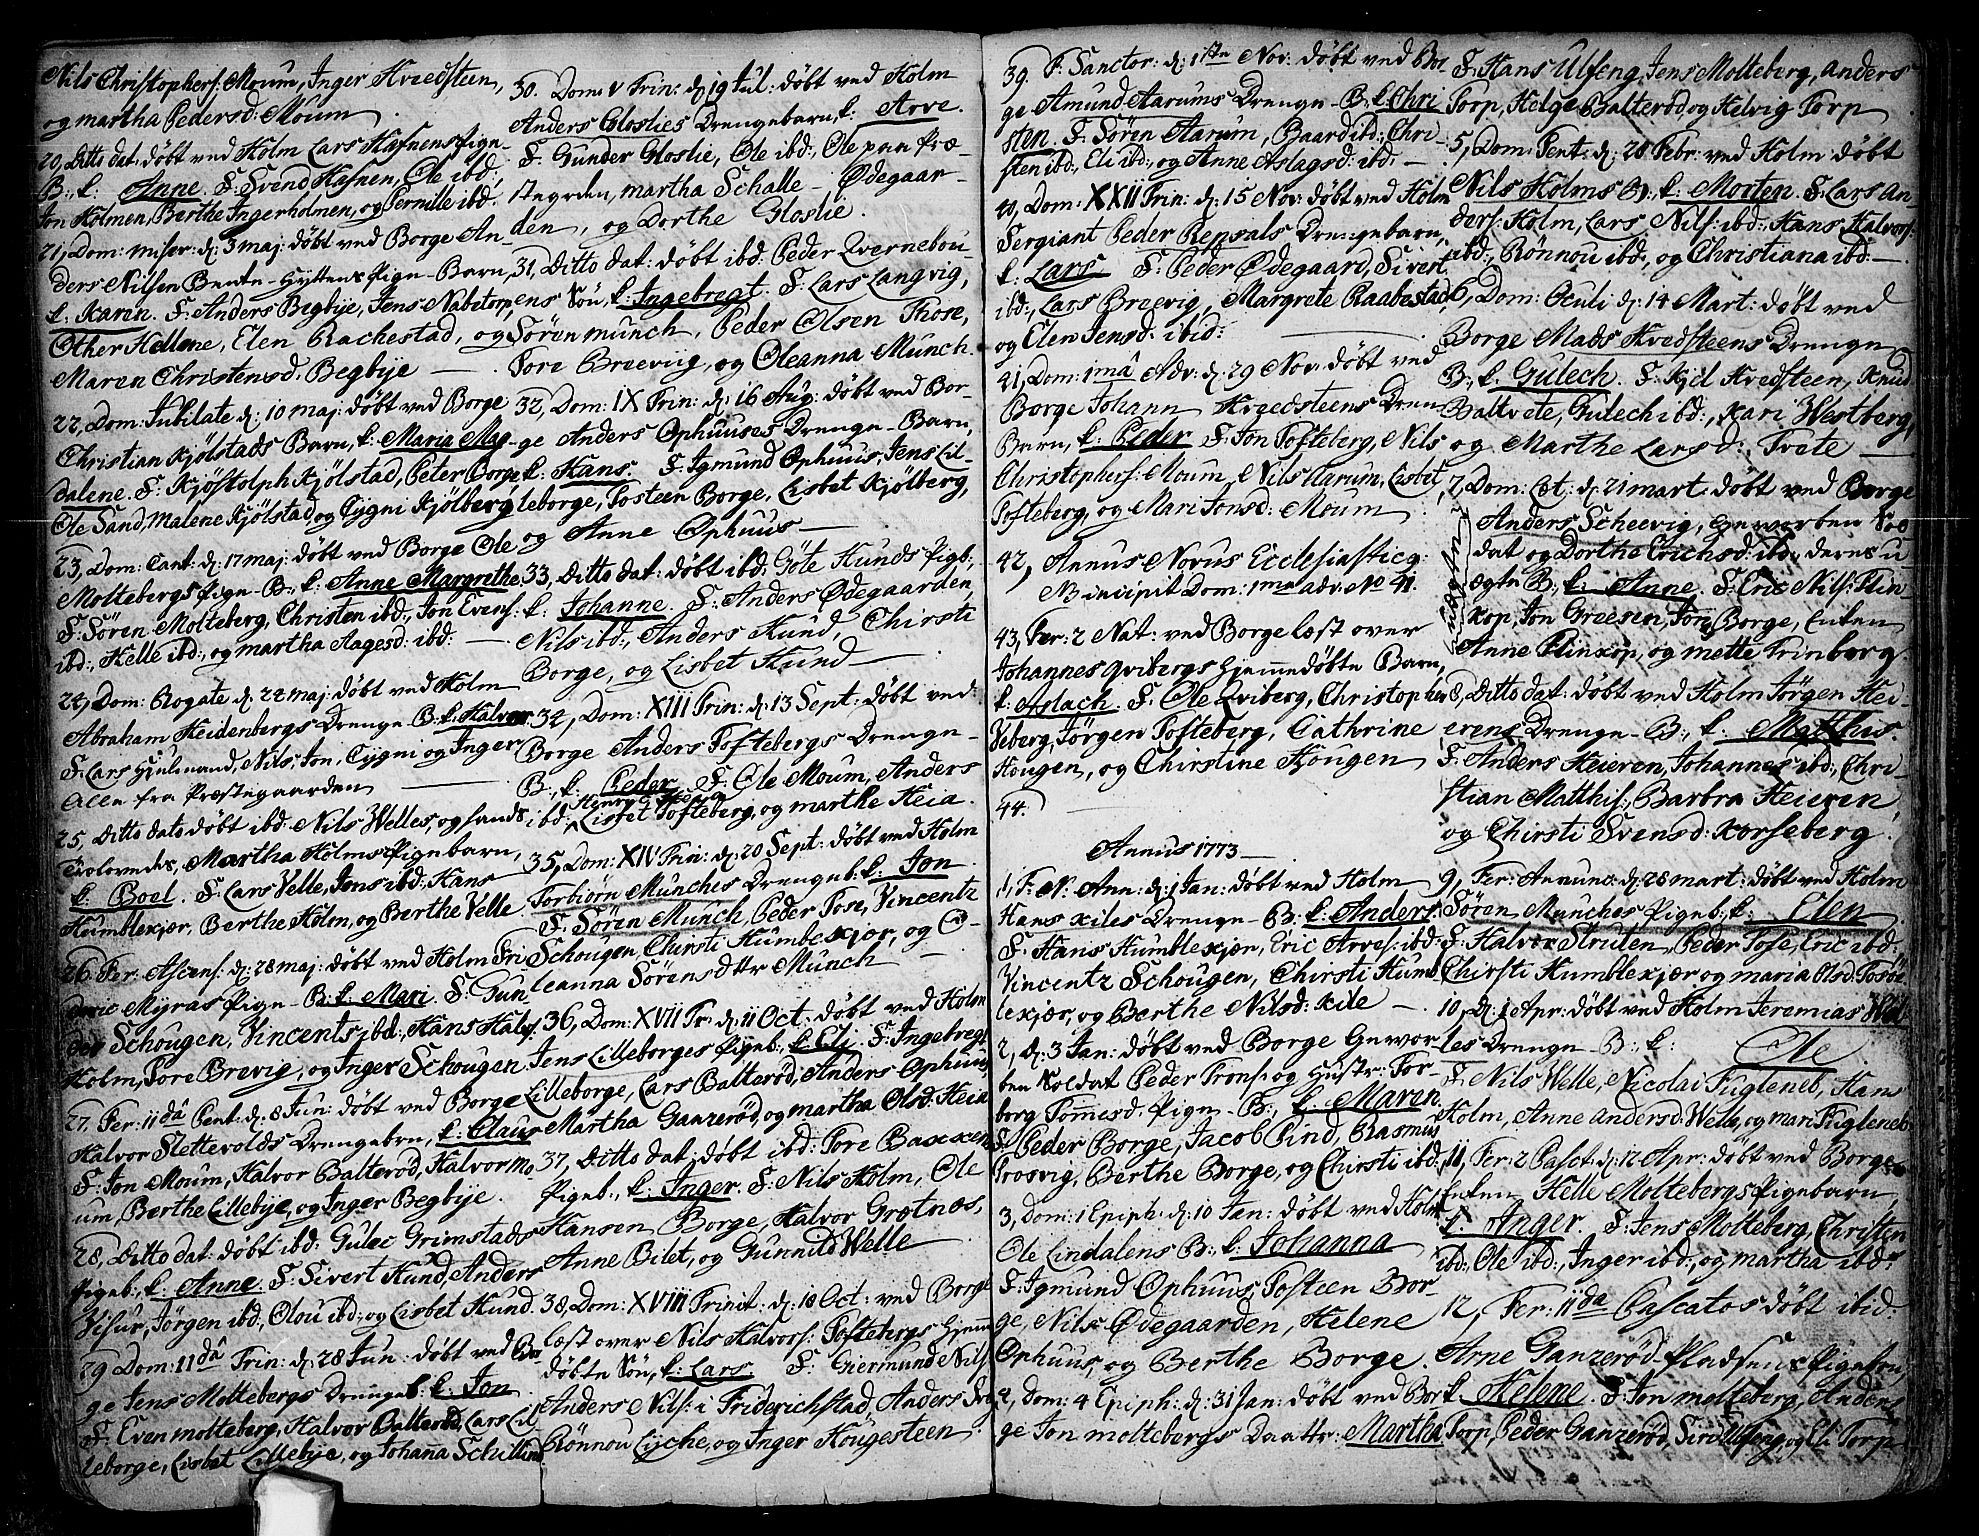 Nils Christophers: Moum, Inger Kredsteen,
og martha Pedersd: Moum
20, Ditto dat: døbt ved Holm Lars Hafnens Pige-
B: k. Anne. F. Svend Hafnen, Ole ibd:
Jon Holmen, Berthe Ingerholmen, og Pernille ibd:
21, Dom: miser: d: 3 maj: døbt ved Borge An-
ders Nilsen Bente-Hyttens Pige-Barn,
k. Karen. F. Anders Begbye, Jens Nabetorp,
Other Hellene, Elen Rachestad, og
Maren Christensd. Begbye
22, Dom: Jubilate d: 10 maj: døbt ved Borge
Christian Kjølstads Barn, k: Maria Mag-
dalene. F. Kjøstolph Kjølstad, Peter Borge
Ole Sand, Malene Kjølstad og Tygni Kjølberg
23, Dom: Cant: d: 17 maj: døbt ved Borge Ole
Moltebergs Pige-B: k: Anne Margrethe
F. Søren Molteberg, Christen ibd:, Jon Evens:
ibd:, Helle ibd:, og martha Aagesd: ibd:
24, Dom: Rogate d: 24 maj: døbt ved Holm
Abraham Heidenbergs Drenge-B: k: Halvor
F. Lars Hjulmand, Nils, Jon, Tygni og Inger
Alle fra Præstegaarden
25, Ditto dato døbt ibd: Nils Welles, og hands
Trolovedes, Martha Holms Pigebarn,
k. Boel. F. Lars Velle, Jens ibd:, Hans
Humblekjær, Berthe Holm, og Berthe Velle
26. Fer: Ascens: d: 28 maj: døbt ved Holm Fri
dric Myras Pige-B: k: Mari. F. Gun
der Schougen, Vincents ibd:, Hans Halv:
Holm, Tore Brevig, og Inger Schougen
27. Fer: 11dâ Pent: d: 8 Jun: døbt ved Borge
Halvor Slettevolds Drengebrn, k: Claus
F. Jon Moum, Halvor Balterød, Halvor Mo-
um, Berthe Lillebye, og Inger Begbye
28, Ditto dat: døbt ibd: Gulec Grimstads
Pigeb: k: Anne. F. Sivert Hund, Anders
Visur, Jørgen ibd:, Olou ibd:, og Lisbet Hund.
29 Dom: 11dâ Trin: d: 28 Jun: døbt ved Bor
ge Jens Moltebergs Drengeb: k: Jon
F. Even molteberg, Halvor Balterød, Lars Lil
leborge, Lisbet Lillebye, og Johana Schilling
30. Dom: V Trin: d: 19 Jul: døbt ved Holm
Anders Gloslies Drengebarn, k: Arve.
F. Gunder Gloslie, Ole ibd:, Ole paa Præ-
stegrden, martha Schalle-Ødegaar-
den, og Dorthe Gloslie.
31, Ditto dat: døbt ibd: Peder Qvernebou-
ens Sön, k: Ingebregt. F. Lars Langvig,
Søren munch, Peder Olsen Those,
Tore Breevig, og Oleanna Munch.
32, Dom: IX Trin: d: 16 Aug: døbt ved Bor-
ge Anders Ophuuses Drenge-Barn,
k: Hans. F. Igmund Ophuus, Jens Lil-
leborge, Tosteen Borge, Lisbet Kjølberg,
og Anne Ophuus
33, Ditto dat: døbt ibd: Göte Hunds Pigb:
k: Johanne. F. Anders Ødegaarden,
Nils ibd:, Anders Hund, Chirsti
Borge, og Lisbet Hund
34, Dom: XIII Trin: d: 13 Sept: døbt ved
Borge Anders Toftebergs Drenge-
B: k: Peder. F. Ole Moum, Anders
ibd:, Lisbet Tofteberg, og marthe Heia.
35, Dom: XIV Trin: d: 20 Sept: døbt ved Holm
Torbiørn Munches Drengeb: k: Jon
F. Søren Munch, Peder Tose, Vincentz
Schougen, Chirsti Humblekjær, og O-
leanna Sørensdttr Munch
36, Dom: XVII Tr: d: 11 Oct: døbt ved Holm
Jens Lilleborges Pigeb:, k: Eli. F. Ingebregt
Lilleborge, Lars Balterød, Anders Ophuus,
Martha Ganzerød, og martha Olsd: Heia
37, Ditto dat: døbt ibd: Tore Baxxens
Pigeb:, k: Inger. F. Nils Holm, Ole
Hansen Borge, Halvor Grætnæs,
Anne Bilet, og Gunnild Welle
38, Dom: XVIII Trinit: d: 18 Oct: ved Borge
læst over Nils Halvors: Toftebergs Hjemme
døbte Sön, k: Lars. F. Giermund Nils:
Anders Nils: i Friderichstad, Anders
Rönnou Lyche, og Inger Hougesteen
39. F. Sanctor: d: 1ste Nov: døbt ved Bor
ge Amund Aarums Drenge-B: k. Chri
sten. F. Søren Aarum, Baard ibd: Chri-
sten ibd:, Eli ibd:, og Anne Aslagsd: ibd:
40, Dom: XXII Trin: d: 15 Nov: døbt ved Holm
Sergiant Peder Repsals Drengebarn,
k. Lars F. Peder Ødegaard, Sivert
ibd:, Lars Breevig, Margrete Raabestad,
og Elen Jensd: ibid:
41, Dom: 1mâ Adv: d: 29 Nov: døbt ved
Borge Johann Kreedsteens Dren
Barn, k: Peder F. Jon Tofteberg, Nils
Christophers: Moum, Nils Aarum, Lisbet
Tofteberg, og Mari Jonsd: Moum
42, Annus Novus Ecclesiasticg
Bincipit Dom: 1ma adv: No 41.
43, Fer: 2 Nat: ved Borge læst over
Johannes Qvibergs Hjemmedøbte Barn,
k. Aslach. F. Ole Qviberg, Christopher
Veberg, Jørgen Tofteberg, Cathrine
Hougen, og Chirstine Hougen
44.
Annus 1773
1, F: N: Ann: d: 1 Jan: døbt ved Holm
Hans Kiles Drenge-B: k: Anders.
F. Hans Humblekjær, Eric Arves: ibd:
Vincentz Schougen, Chirsti Humb
lekjær, og Berthe Nilsd: Kile
2, d: 3 Jan: døbt ved Borge Gewor-
ben Soldat Peder Trons: og Hustr: Tor-
borg Tommesd: Pige-B:, k: Maren
F. Peder Borge, Jacob Pind, Rasmus
Proovig, Berthe Borge, og Chirsti ibd:
3, Dom: 1 Epiph: d: 10 Jan: døbt ved Holm
Ole Lindalens B: k: Johanna
F. Igmund Ophuus, Tosteen Bor-
ge, Nils Ødegaarden, Helene
Ophuus, og Berthe Borge.
4, Dom: 4 Epiph: d: 31 Jan: døbt ved Bor
ge Jon moltebergs Daattr: Martha
F. Hans Ulfeng, Jens Molteberg, Anders
Torp, Helge Balterød, og Helvig Torp
5, Dom: Pent: d: 28 Febr: ved Holm døbt
Nils Holms B: k. Morten. F. Lars An-
ders: Holm, Lars Nils: ibd: Hans Halvors:
ibd:, Rönnou ibd:, og Christiana ibd:
6, Dom: Oculi d: 14 Mart: døbt ved
Borge Mads Kredsteens Drenge
B: k. Gulech. F. Kjel Kredsteen, Knud
Baltvete, Gulech ibd:, Kari Westberg,
og Marthe Larsd: Tvete
7, Dom: Læt: d: 21 mart: døbt ved Borge
Anders Scheevig, Geworben Sol
dat og Dorthe Erichsd: ibd: deres u
ægte B: k: Anne. F. Eric Nils: Flin-
kop, Jon Greesen, Jon Borge, Enken
Anne Flinkop, og mette Trinborg.
8, Ditto dat: døbt ved Holm Jørgen Hei-
erens Drenge-B:, k. Matthis.
F. Anders Heieren, Johannes ibd:, Chri-
stian Matthis:, Barbra Heieren
og Chirsti Svensd: Korseberg
9, Fer: Annunc: d: 28 mart: døbt ved Holm
Søren Munches Pigeb:, k: Elen
F. Halvor Struten, Peder Tose, Eric ibd:
Chirsti Humblekjær og maria Olsd: Tosøe
10, d: 1 Apr: døbt ved Holm Jeremias Wel-
les Drenge-B:, k: Ole
F. Nils Welle, Nicolai Fugleneb, Hans
Holm, Anne Andersd: Welle, og mari Fugleneb
11, Fer: 2 Pasc: d: 12 Apr: døbt ved Borge
Enken Helle Moltebergs Pigebarn
k. Inger F. Jens Molteberg, Christen
ibd:, Ole ibd:, Inger ibd:, og martha ibd:
12, Fer: 11da Pascatos døbt ibid:
Arne Ganzerød-Pladsens Pigebrn
k. Helene F. Jon molteberg, Anders
Torp, Peder Ganzerød, Siri Ulfeng, og Eli Torp